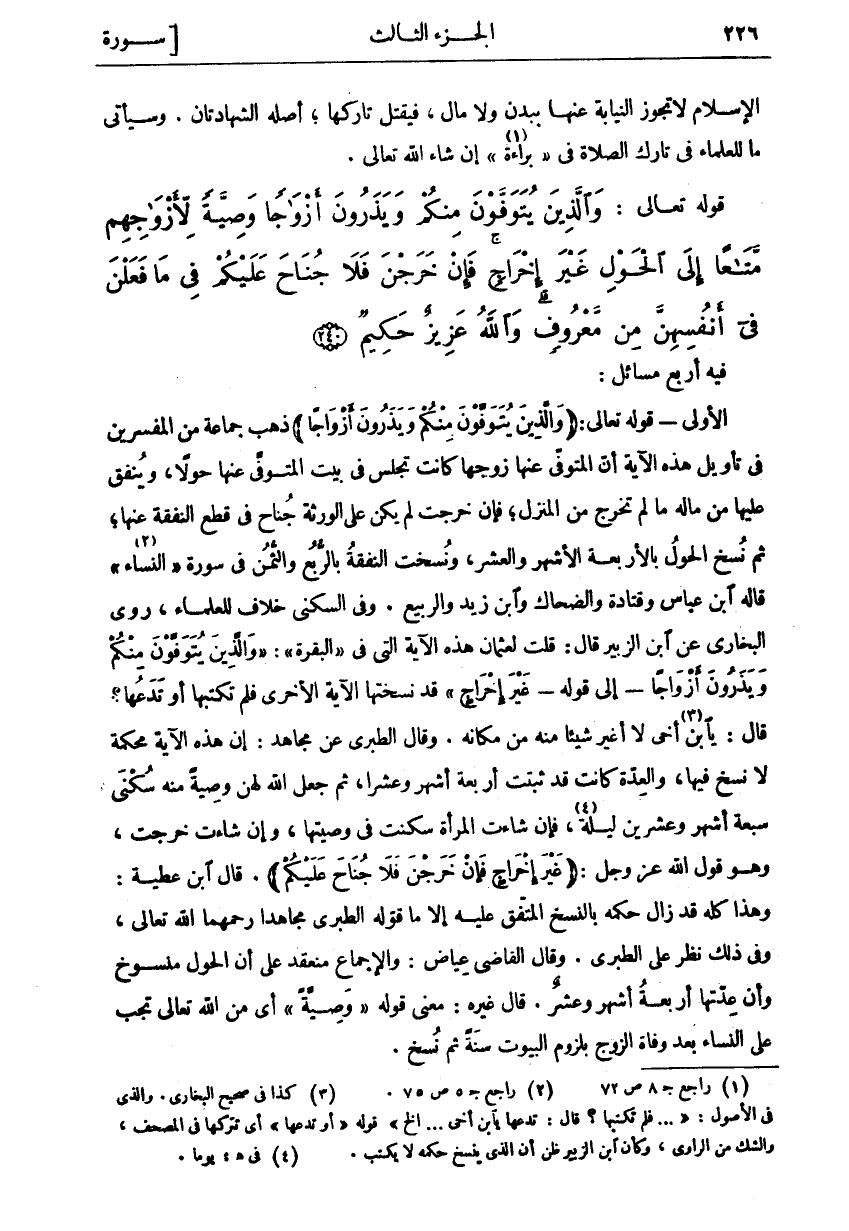 ٢٢٦ الجـــزء الثـالث [ ســـورة
الإســلام لاتجوز النيابة عنهـا ببدن ولا مال ، فيقتل تاركها ؛ أصله الشهادتان . وسـيأتى
ما للعلماء فى تارك الصلاة فى « براءة » (١) إن شاء الله تعالى .
قوله تعـالى : وَٱلَّذِينَ يُتَوَفَّوْنَ مِنكُمْ وَيَذَرُونَ أَزْوَٰجًا وَصِيَّةً لِّأَزْوَٰجِهِم
مَّتَـٰعًا إِلَى ٱلْحَوْلِ غَيْرَ إِخْرَاجٍ ۚ فَإِنْ خَرَجْنَ فَلَا جُنَاحَ عَلَيْكُمْ فِى مَا فَعَلْنَ
فِىٓ أَنفُسِهِنَّ مِن مَّعْرُوفٍ ۗ وَٱللَّهُ عَزِيزٌ حَكِيمٌ ﴿٢٤٠﴾
فيه أربع مسائل :
الأولى – قوله تعالى: ﴿ وَالَّذِينَ يُتَوَفَّوْنَ مِنْكُمْ وَيَذَرُونَ أَزْوَاجًا ﴾ ذهب جماعة من المفسرين
فى تأويل هذه الآية أنّ المتوفّى عنها زوجها كانت تجلس فى بيت المتـوفَّى عنها حولًا، ويُنفق
عليها من ماله ما لم تخرج من المنزل؛ فإن خرجت لم يكن على الورثة جُناح فى قطع النفقة عنها؛
ثم نُسخ الحولُ بالأربعـة الأشهر والعشر، ونُسخت النفقةُ بالرُّبُع والثُّمُن فى سورة « النساء » (٢)
قاله ٱبن عباس وقتادة والضحاك وٱبن زيد والربيع . وفى السكنى خلاف للعلمـاء ، روى
البخارى عن ٱبن الزبير قال: قلت لعثمان هذه الآية التى فى «البقرة»: «وَالَّذِينَ يُتَوَفَّوْنَ مِنْكُمْ
وَيَذَرُونَ أَزْوَاجًا — إلى قوله — غَيْرَ إِخْرَاجٍ » قد نسختها الآية الأخرى فلم تكتبها أو تَدَعُها؟
قال : يٱبن أخى (٣) لا أغير شيئا منه من مكانه . وقال الطبرى عن مجاهد : إن هذه الآية محكمة
لا نسخ فيها، والعِدّة كانت قد ثبتت أربعة أشهر وعشرا، ثم جعل الله لهن وصيةً منه سُكْنَى
سبعة أشهر وعشرين ليـلة (٤)، فإن شاءت المرأة سكنت فى وصيتها ، وإن شاءت خرجت ،
وهـو قول الله عز وجل : ﴿ غَيْرَ إِخْرَاجٍ فَإِنْ خَرَجْنَ فَلَا جُنَاحَ عَلَيْكُمْ ﴾ . قال ٱبن عطيـة :
وهذا كله قد زال حكمه بالنسخ المتّفق عليـه إلا ما قوّله الطبرى مجاهدا رحمهما الله تعالى ،
وفى ذلك نظر على الطبرى . وقال القاضى عياض : والإجماع منعقد على أن الحول منسـوخ
وأن عِدّتها أربعـةُ أشهر وعشرٌ . قال غيره : معنى قوله « وَصِـيَّةً » أى من الله تعالى تجب
على النساء بعد وفاة الزوج بلزوم البيوت سنَةً ثم نُسخ .
(١) راجع جـ ٨ ص ٧٢ (٢) راجع جـ ٥ ص ٧٥ . (٣) كذا فى صحيح البخارى. والذى
فى الأصول : « ... فلم تكتبها ؟ قال : تدعها يٱبن أخى ... الخ » قوله « أو تدعها » أى تتركها فى المصحف ،
والشك من الراوى ، وكأن ٱبن الزبير ظن أن الذى ينسخ حكمه لا يكتب . (٤) فى هـ ٤ يوما .